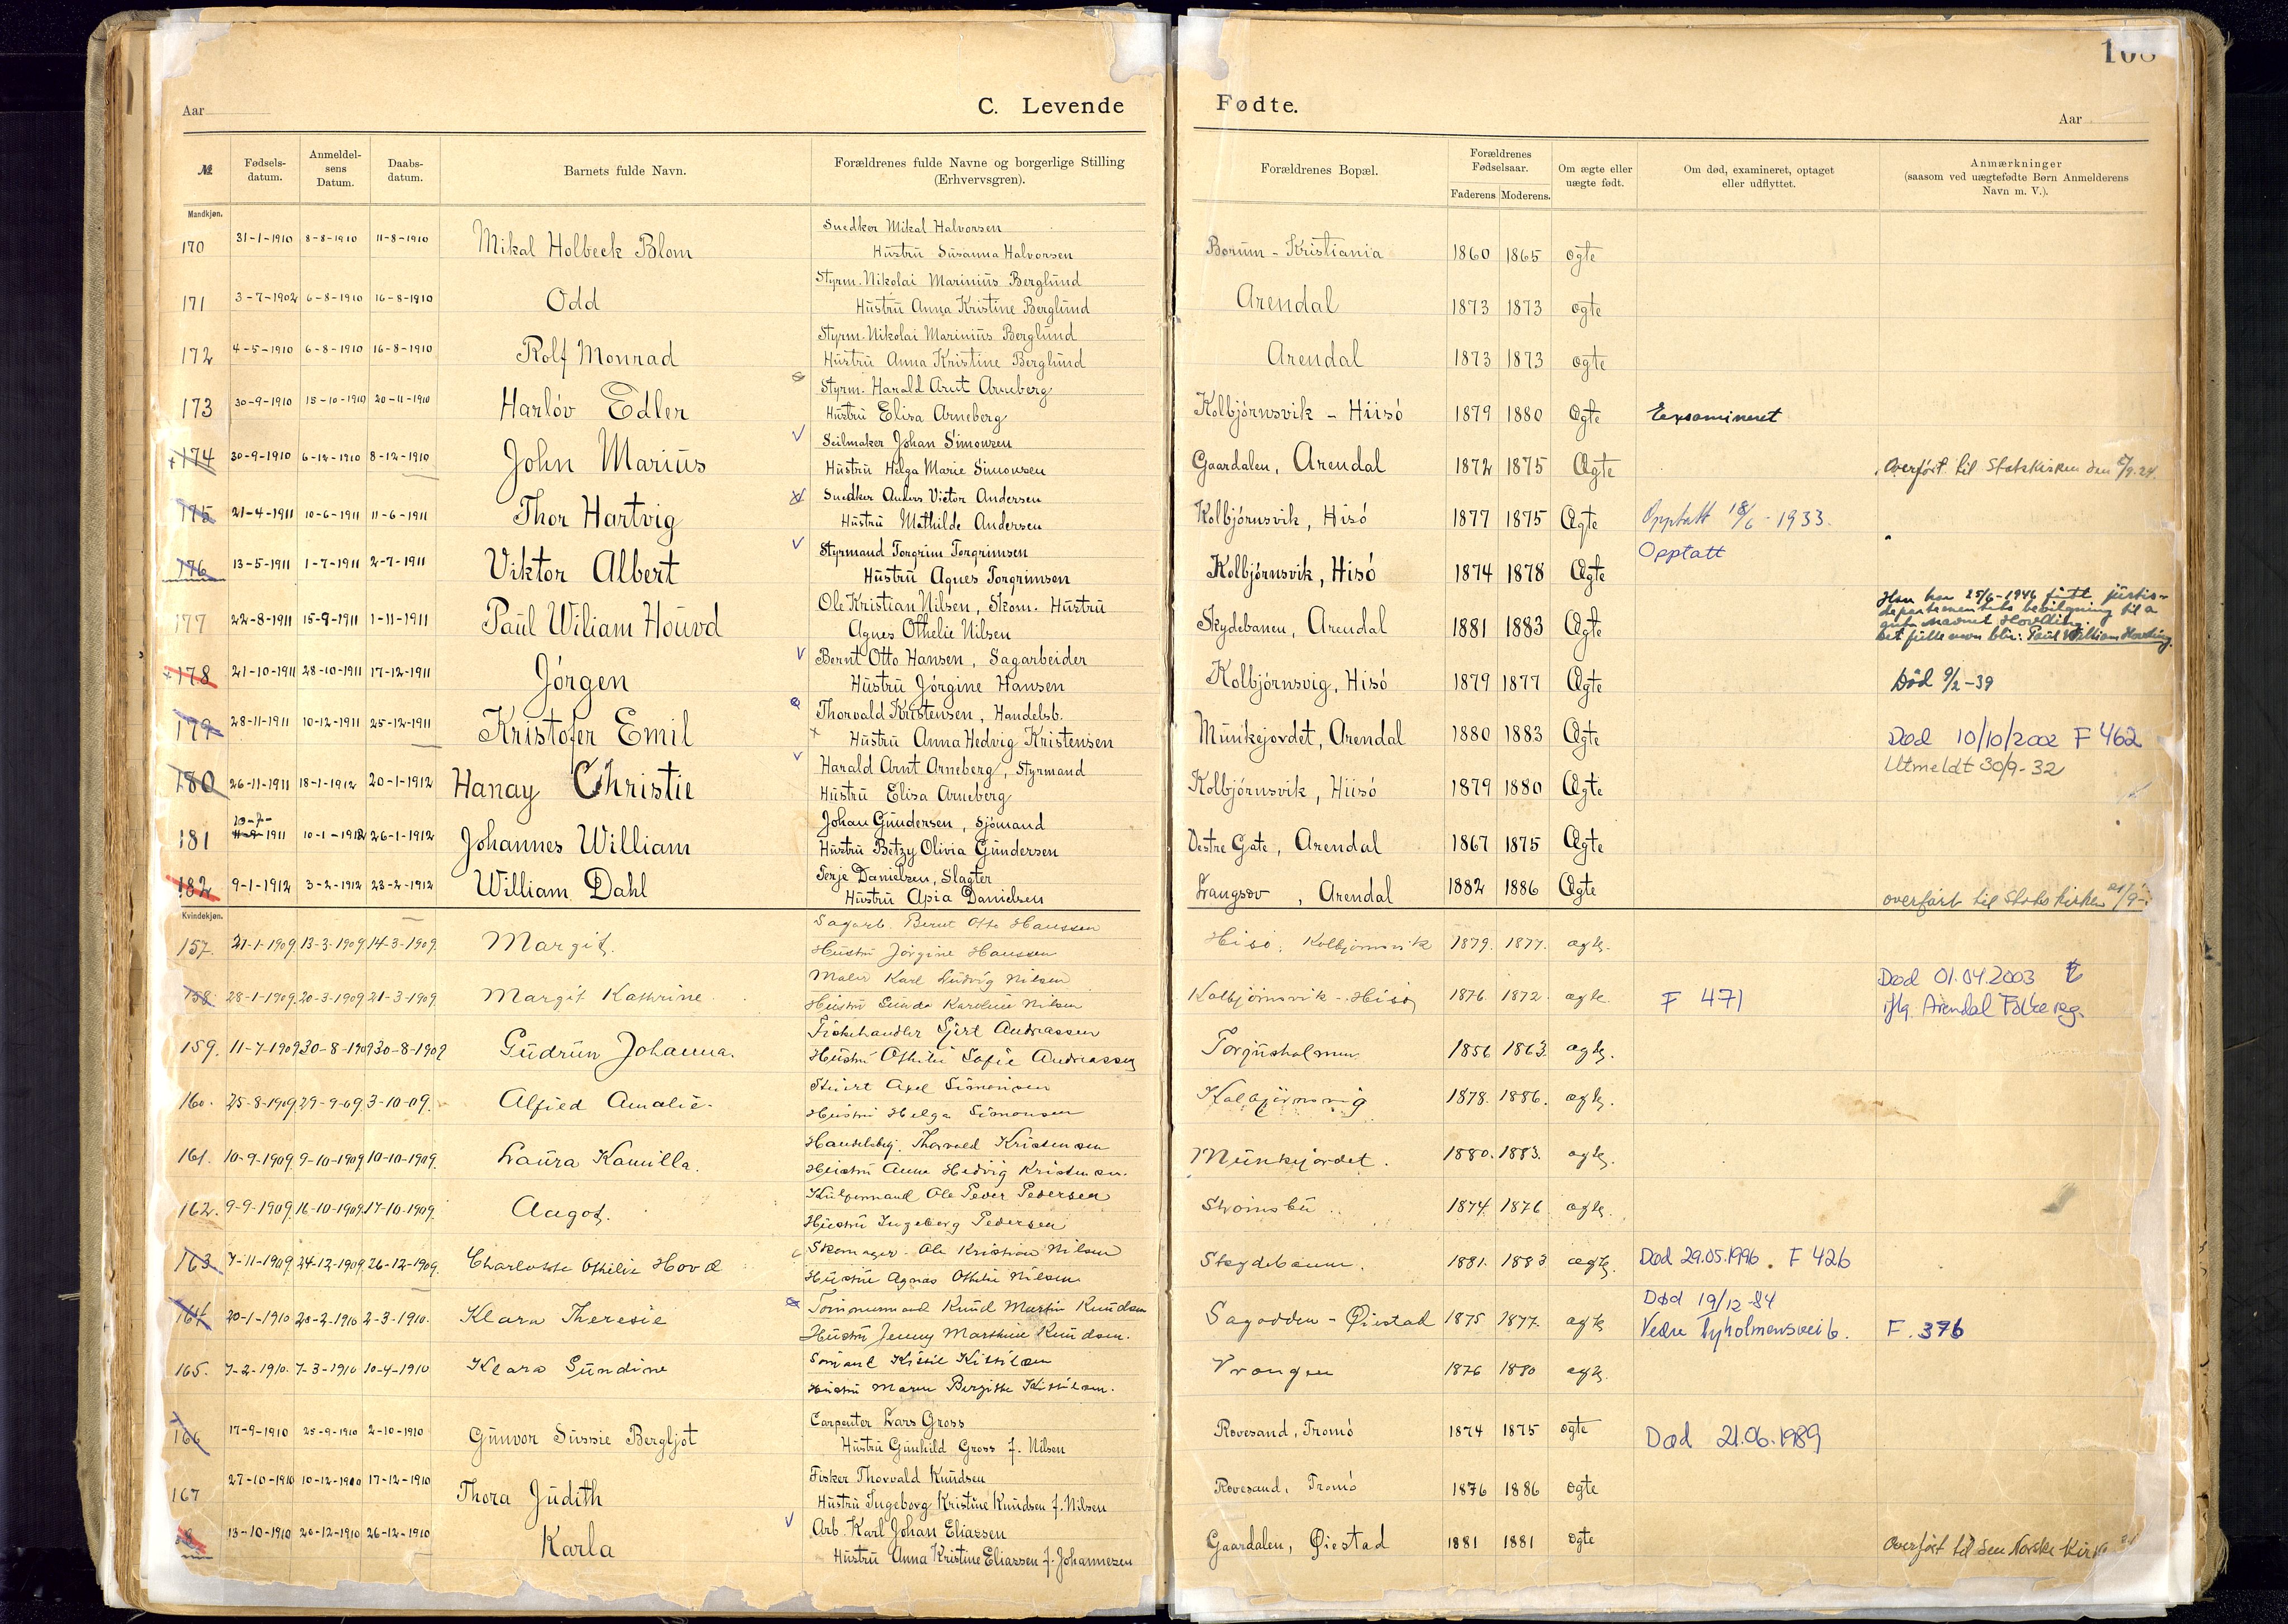 108
Aar
C. Levende Fødte.
Aar
№
Fødsels-datum.
Anmeldel-sens Datum.
Daabs-datum.
Barnets fulde Navn.
Forældrenes fulde Navne og borgerlige Stilling (Erhvervsgren).
Forældrenes Bopæl.
Forældrenes Fødselsaar.
Faderens
Moderens.
Om ægte eller uægte født.
Om død, examineret, optaget eller udflyttet.
Anmærkninger (saasom ved uægtefødte Børn Anmelderens Navn m. V.).
Mandkjøn.
170 31-1-1910 8-8-1910 11-8-1910 Mikal Holbeck Blom Snedker Mikal Halvorsen
Hustru Susanna Halvorsen Borum - Kristiania 1860 1865 ogte
171 3-7-1902 6-8-1910 16-8-1910 Odd Styrm. Nikolai Marinius Berglund
Hustru Anna Kristine Berglund Arendal 1873 1873 ogte
172 4-5-1910 6-8-1910 16-8-1910 Rolf Monrad Styrm. Nikolai Marinius Berglund
Hustru Anna Kristine Berglund Arendal 1873 1873 ogte
173 30-9-1910 15-10-1910 20-11-1910 Harlóv Edler Styrm. Harald Arnt Arneberg
Hustru Elisa Arneberg Kolbjórnsvik - Hiisó 1879 1880 Ægte Exsamineret
174 30-9-1910 6-12-1910 8-12-1910 John Marius Seilmaker Johan Simonsen
Hustru Helga Marie Simonsen Gaardalen, Arendal 1872 1875 Ægte Overfört til Statskirken den
175 21-4-1911 10-6-1911 11-6-1911 Thor Hartvig Snedker Anders Victor Andersen
Hustru Mathilde Andersen Kolbjórnsvik, Hisó 1877 1875 Ægte Opptatt 18/6 - 1933.
176 13-5-1911 1-7-1911 2-7-1911 Viktor Albert Styrmand Torgrim Torgrimsen
Hustru Agnes Torgrimsen Kolbjórnsvik, Hisó 1874 1878 Ægte Opptatt
177 22-8-1911 15-9-1911 1-11-1911 Paul Wiliam Houvd Ole Kristian Nilsen, Skom. Hustru
Agnes Othelie Nilsen Skydebanen, Arendal 1881 1883 Ægte Han har 25/6-1946 fått justis-
departementets bevilgning til å
navnet Hovding.
Det fulle navn blir: Paul William Hovding.
178 21-10-1911 28-10-1911 17-12-1911 Jórgen Bernt Otto Hansen, Sagarbeider
Hustru Jórgine Hansen Kolbjórnsvig, Hisó 1879 1877 Ægte Död 9/2-39
179 28-11-1911 10-12-1911 25-12-1911 Kristofer Emil Thorvald Kristensen, Handelsb.
Hustru Anna Hedvig Kristensen Munkejordet, Arendal 1880 1883 Ægte Død 10/10/2002 F 462
180 26-11-1911 18-1-1912 20-1-1912 Hanay Christie Harald Arnt Arneberg, Styrmand
Hustru Elisa Arneberg Kolbjórnsvik, Hiisó 1879 1880 Ægte Utmeldt 30/9-32
181 10-7- 11-9-1911 10-1-1912 26-1-1912 Johannes William Johan Gundersen, Sjómand
Hustru Betzy Olivia Gundersen Vestre Gate, Arendal 1867 1875 Ægte
182 9-1-1912 3-2-1912 23-2-1912 William Dahl Terje Danielsen, Slagter
Hustru Apia Danielsen Langsev, Arendal 1882 1886 Ægte overfört til Statskirken
Kvindekjøn.
157. 21-1-1909 13-3-1909 14-3-1909. Margit. Sagarb. Bernt Otto Hanssen
Hustru Jörgine Hanssen Hisö. Kolbjörnsvik 1879. 1877. ægte.
158. 28-1-1909. 20-3-1909 21-3-1909 Margit Kathrine. Maler Karl Ludvig Nilsen
Hustru Gunda Karoline Nilsen Kolbjörnsvik - Hisö 1876. 1872. ægte. F 471 Død 01.04.2003
iflg. Arendal Folkereg.
159. 11-7-1909 30-8-1909 30-8-1909 Gudrun Johanna. Fiskehandler Gjert Andreassen
Hustru Othilie Sofie Andreassen Torjusholmen 1856 1863. ægte.
160. 25-8-1909. 29-9-09. 3-10-09. Alfied Amalie. Stuert Axel Simonsen
Hustru Helga Simonsen Kolbjörnsvig 1878. 1886. ægte.
161. 10-9-1909. 9-10-1909 10-10-1909. Laura Kamilla. Handelsbetj. Thorvald Kristensen
Hustru Anna Hedvig Kristensen. Munkejordet. 1880. 1883. ægte.
162. 9-9-1909. 16-10-1909. 17-10-1909. Aagot. Ole Peder Pedersen
Hustru Ingeborg Pedersen Strömsbu 1874. 1876 ægte.
163 7-11-1909. 24-12-1909. 26-12-1909. Charlotte Othilie Hovd Skomager. Ole Kristian Nilsen
Hustru Agnes Othilie Nilsen Skydebanen. 1881. 1883 ægte. Død 29.05.1996. F 426
164 20-1-1910 20-2-1910 2-3-1910. Klara Theresie Tømmermand Knud Martin Knudsen
Hustru Jenny Marthine Knudsen. Sagodden - Øiestad 1875 1877. ægte Død 19/12-84
Vedre Tyholmensvei 6. F. 376
165. 7-2-1910. 7-3-1910 10-4-1910 Klara Gundine Sömand Kissil Kissilsen
Hustru Maren Bergitte Kissilsen. Vrangen 1876 1880 ægte.
166 17-9-1910 25-9-1910 2-10-1910 Gunvor Sussie Bergljot Carpenter Lars Gross
Hustru Gunhild Gross f. Nilsen Rovesand, Tromó 1874 1875 ogte Død 21.06.1989
167 27-10-1910 10-12-1910 17-12-1910 Thora Judith Fisker Thorvald Knudsen
Hustru Ingeborg Kristine Knudsen f. Nilsen Rovesand, Tromó 1876 1886 ogte
13-10-1910 20-12-1910 26-12-1910 Karla Arb. Karl Johan Eliassen
Hustru Anna Kristine Eliassen f. Johannesen Gaardalen, Øiestad 1881 1881 ogte Overfört til den Norske Kirke